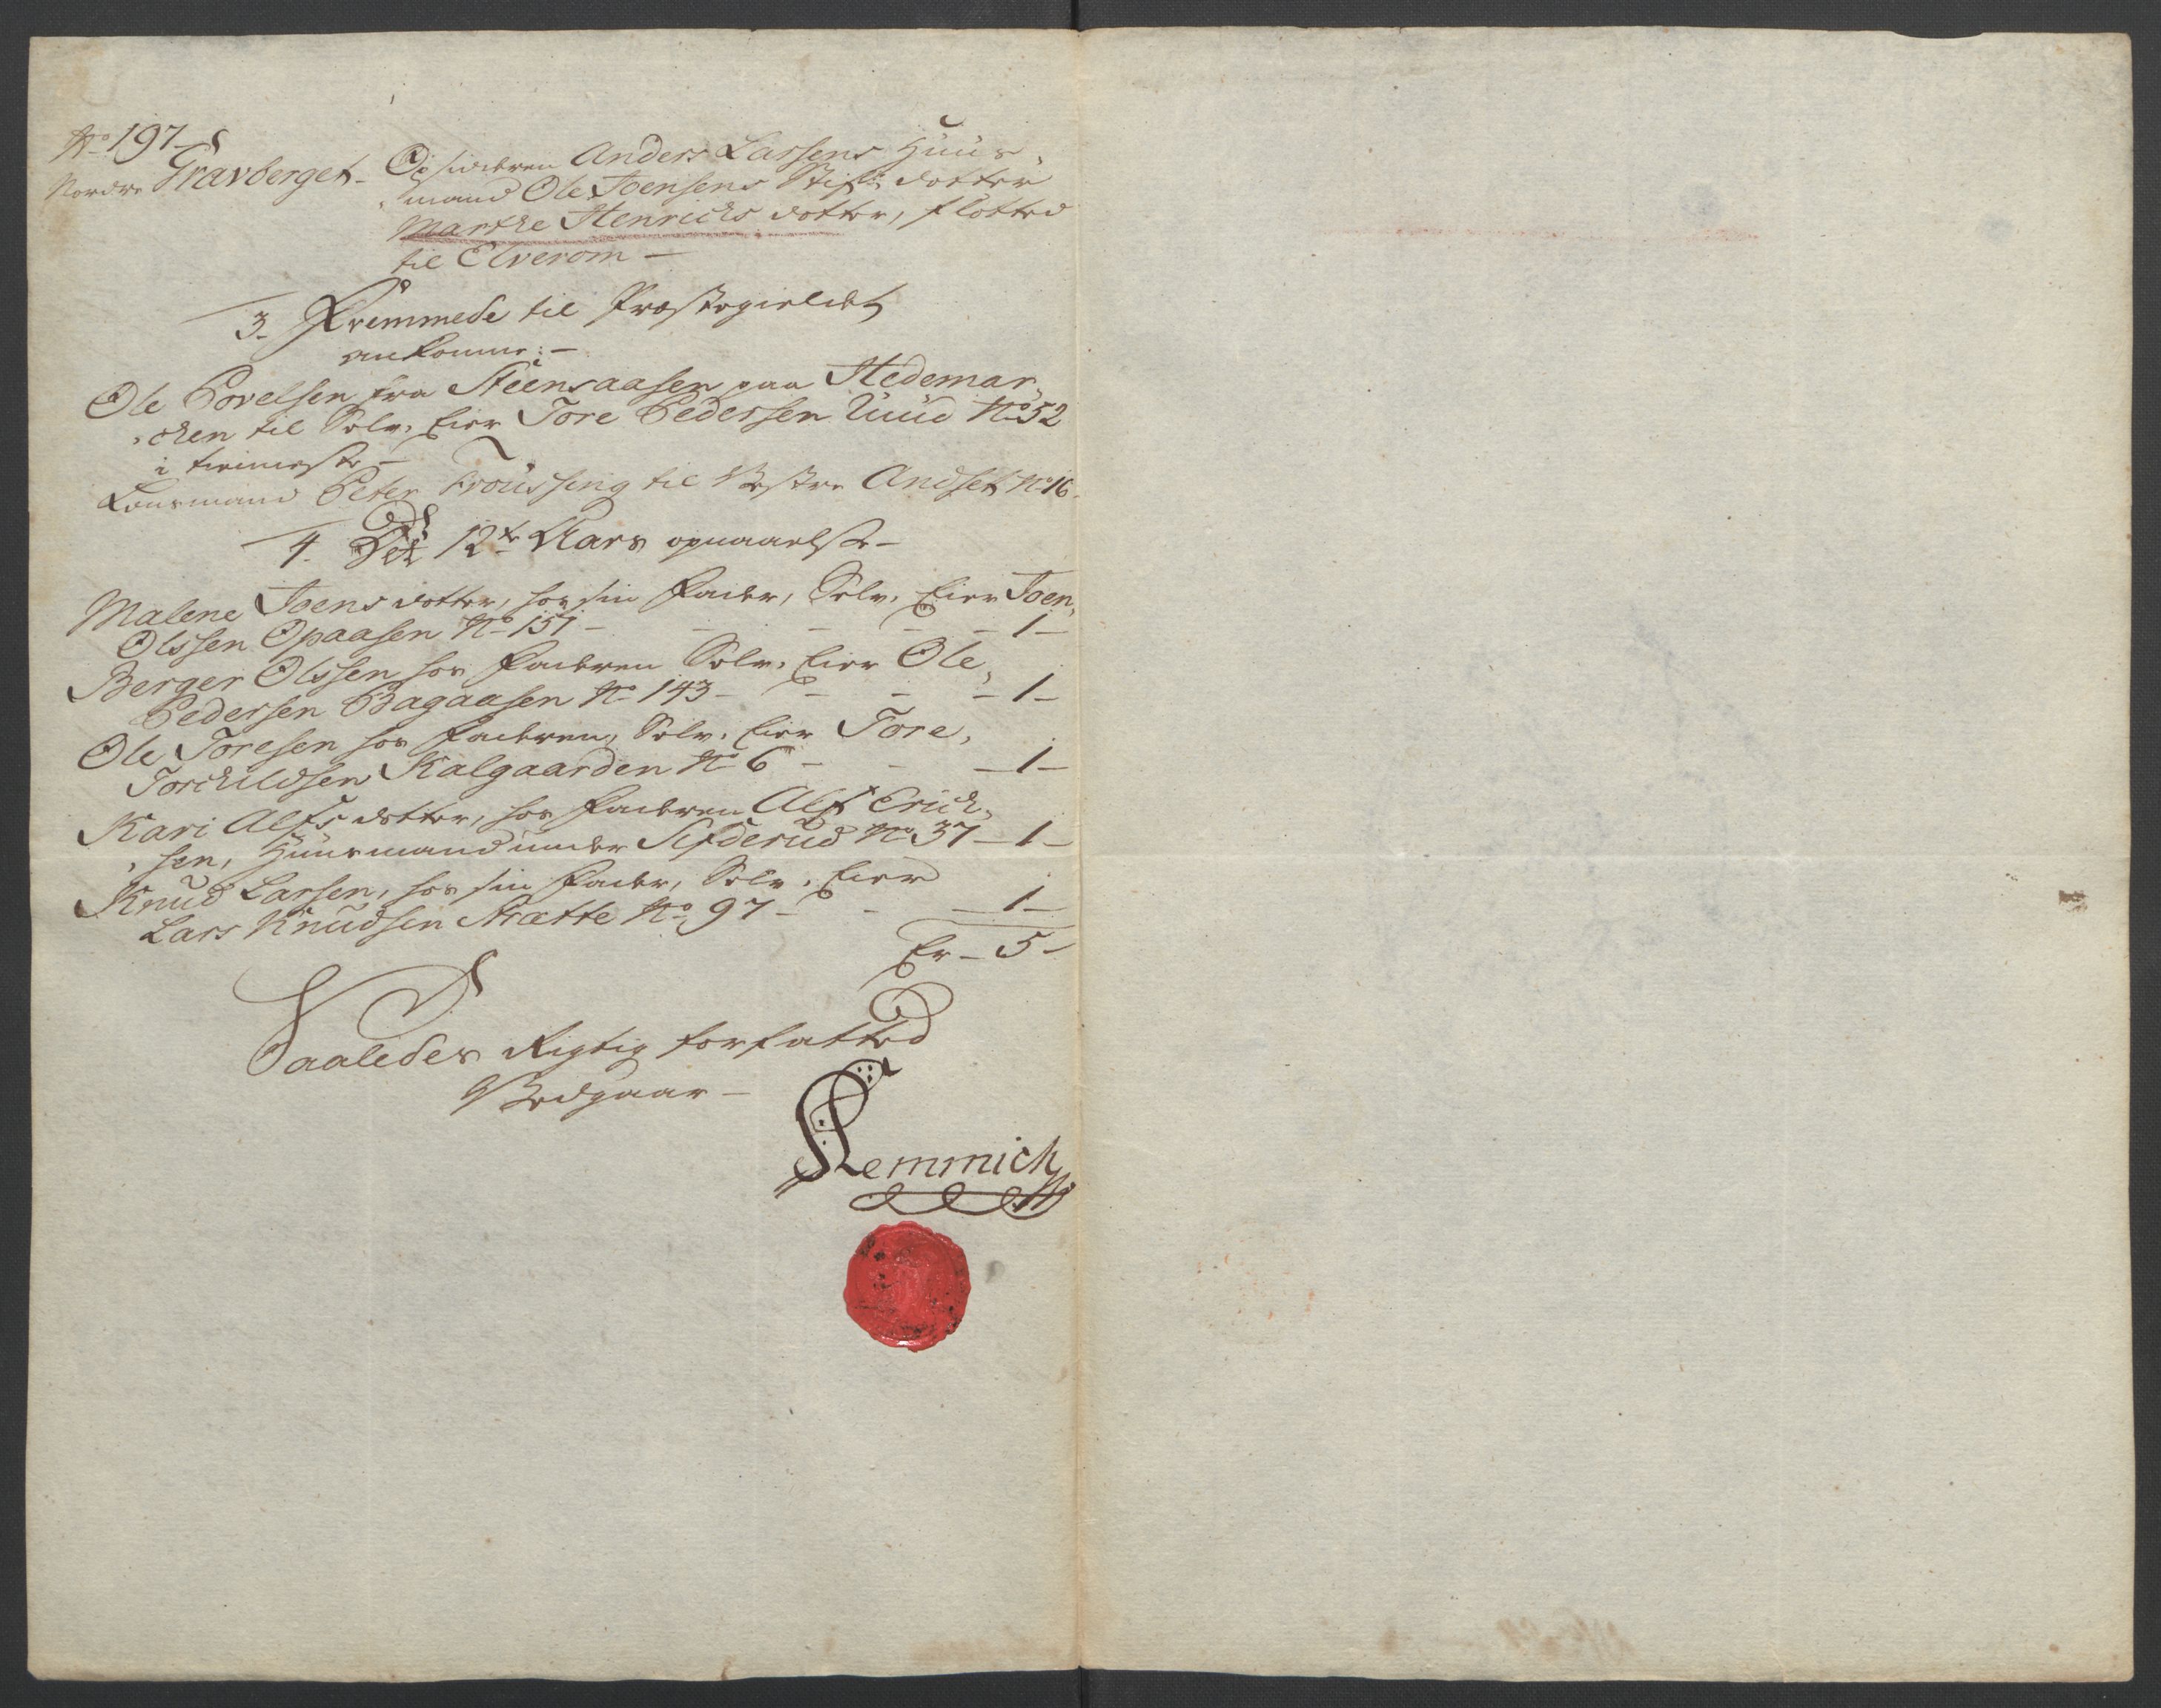 No 197
Nordre Gravberget - Opsidderen Anders Larsens Huus,
mand Ole Joensens Stif: dotter
Marthe Henrichs dotter, flötted
til Elverom -
3. Fremmede til Præstegieldet
ankomne: -
Ole Povelsen fra Steensaasen paa Hedemar,
,chen til Selv. Eier Tore Pedersen Uuud No 52
i tieneste -
Lensmand Peter Troussing til Vestre Andset No 16.
4. Det 12te Aars opnaaelse -
Malene Joens dotter, hos sin Fader, Selv. Eier Joen,
Olssen Opaasen No 151 - - - - - 1 -
Berger Olssen hos Faderen Selv. Eier Ole,
Pedersen Bagaasen No 143 - - - - 1 -
Ole Toresen hos Faderen, Selv. Eier Tore,
Torchildsen Kalgaarden No 6 - - - 1 -
Kari Alfs dotter, hos Faderen Alf Erich,
,sen, Huusmand under Sifderud No 37 - 1 -
Knud Larsen, hos sin Fader, Selv. Eier
Lars Knudsen Nætte No 97 - - - 1 -
Er - 5 -
Saaledes Rigtig forfatted
Vedgaar -
Kemmich